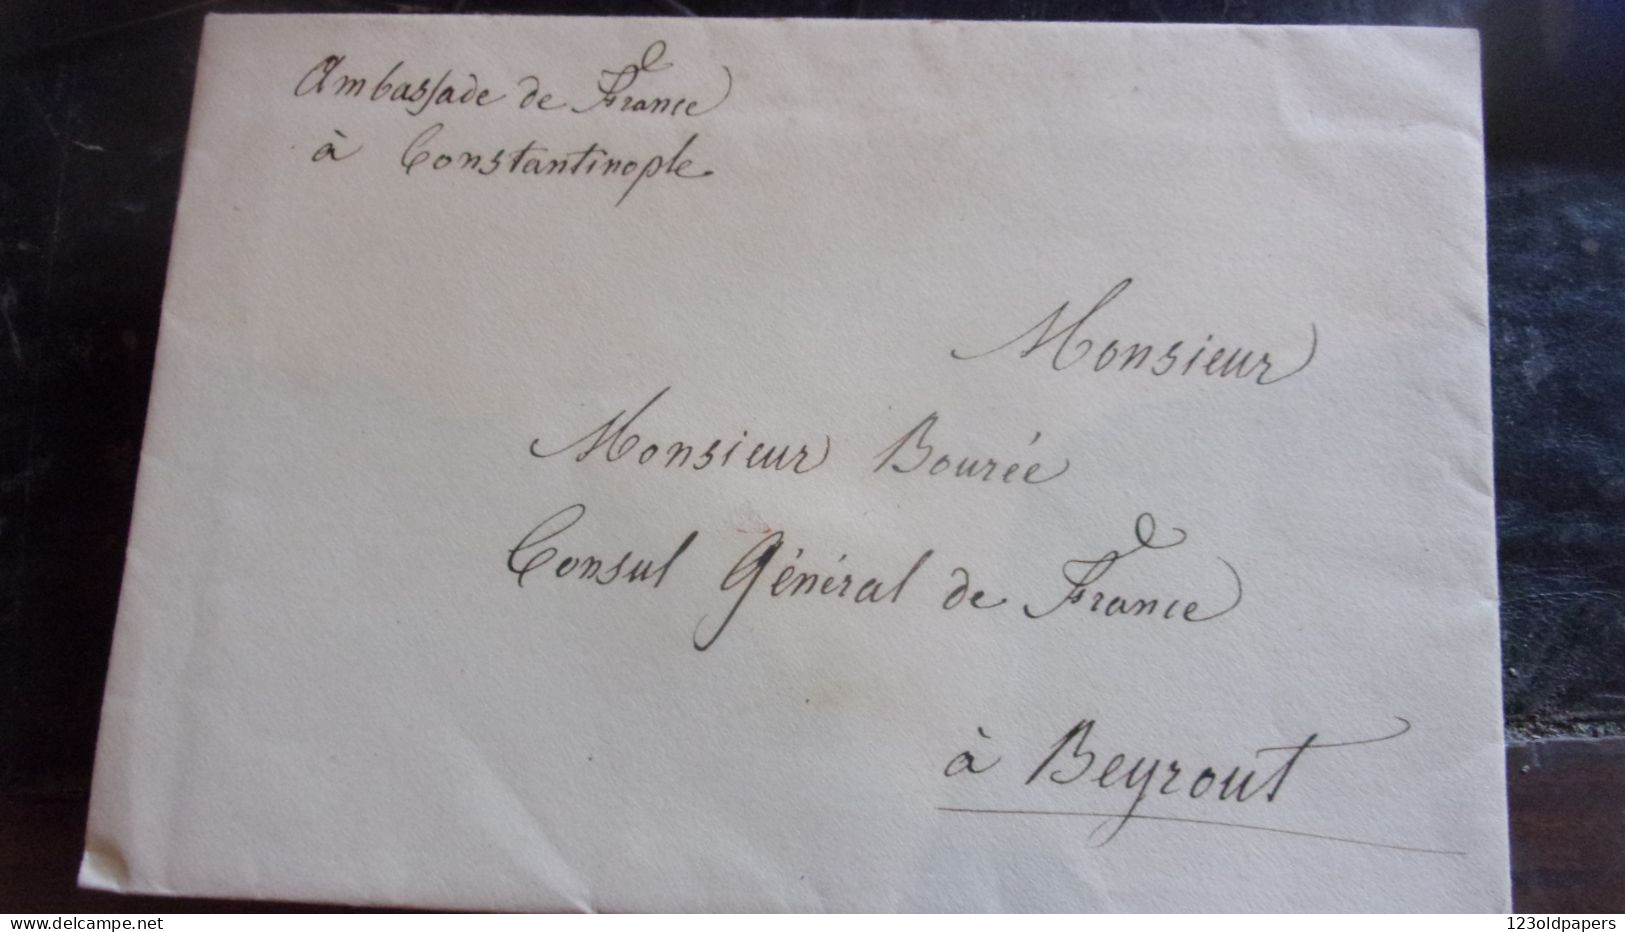 Ambassade de France
à Constantinople.
Monsieur
Monsieur Bourée
Consul Général de France
à Beyrout
www.delcampe.net
123oldpapers